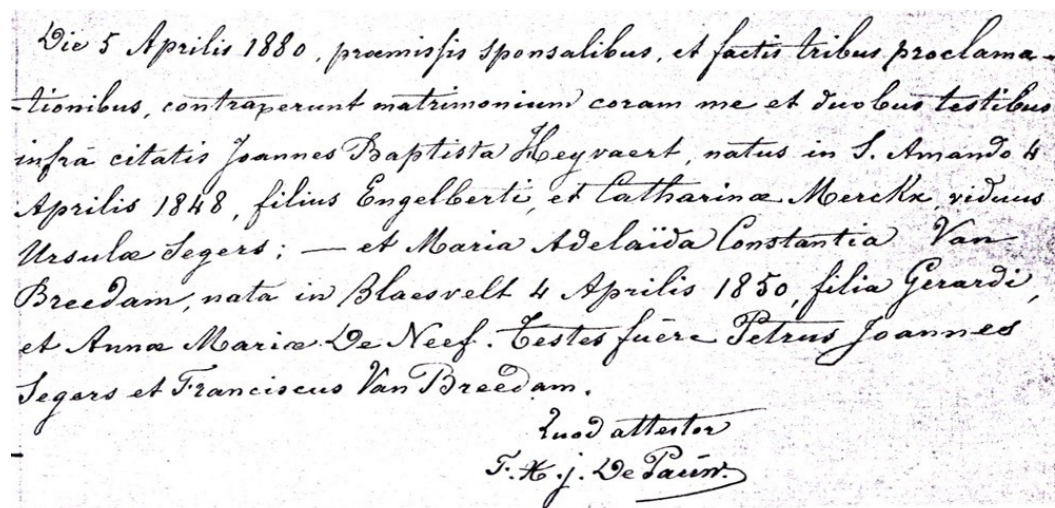 Die 5 Aprilis 1880, præmissis sponsalibus, et factis tribus proclama-
-tionibus, contraxerunt matrimonium coram me et duobus testibus
infrà citatis Joannes Baptista Heyvaert, natus in S. Amando 4
Aprilis 1848, filius Engelberti, et Catharinæ Merckx, viduus
Ursulæ Segers; — et Maria Adelaïda Constantia Van
Breedam, nata in Blaesvelt 4 Aprilis 1850, filia Gerardi,
et Annæ Mariæ De Neef. Testes fuêre Petrus Joannes
Segers et Franciscus Van Breedam.
Quod attestor
F. X. j. De Pauw.